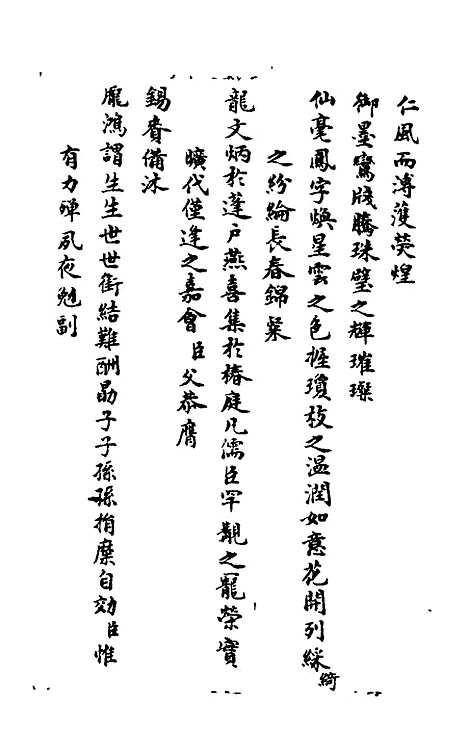 仁風而溥蒦熒煌
御墨鸞牋騰珠璧之輝璀璨
仙毫鳳字煥星雲之色握瓊枝之温潤如意花開列綵綺
之紛綸長春錦粲
龍文炳於蓬戶燕喜集於椿庭凡儒臣罕覯之寵榮實
曠代僅逢之嘉會臣父恭膺
錫賚備沐
龐鴻謂生生世世銜結難酬勗子子孫孫捐糜自効臣惟
有力殫夙夜勉副